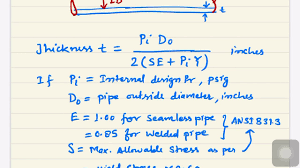 t
Thickness t = Pi Do / 2(SE + Pi Y) inches
If Pi = Internal design Pr, psig
Do = pipe outside diameter, inches
E = 1.00 for Seamless pipe } ANSI B31.3
= 0.85 for Welded pipe
S = Max. Allowable Stress as per